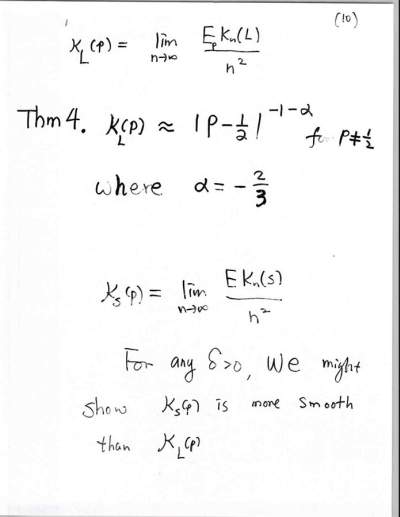 (10)
K_L(p) = lim_{n→∞} E_p K_n(L) / n²
Thm 4. K_L(p) ≈ |p - 1/2|^{-1-α} for p ≠ 1/2
where α = - 2/3
K_s(p) = lim_{n→∞} E K_n(s) / n²
For any δ>0, We might
show K_s(p) is more smooth
than K_L(p)